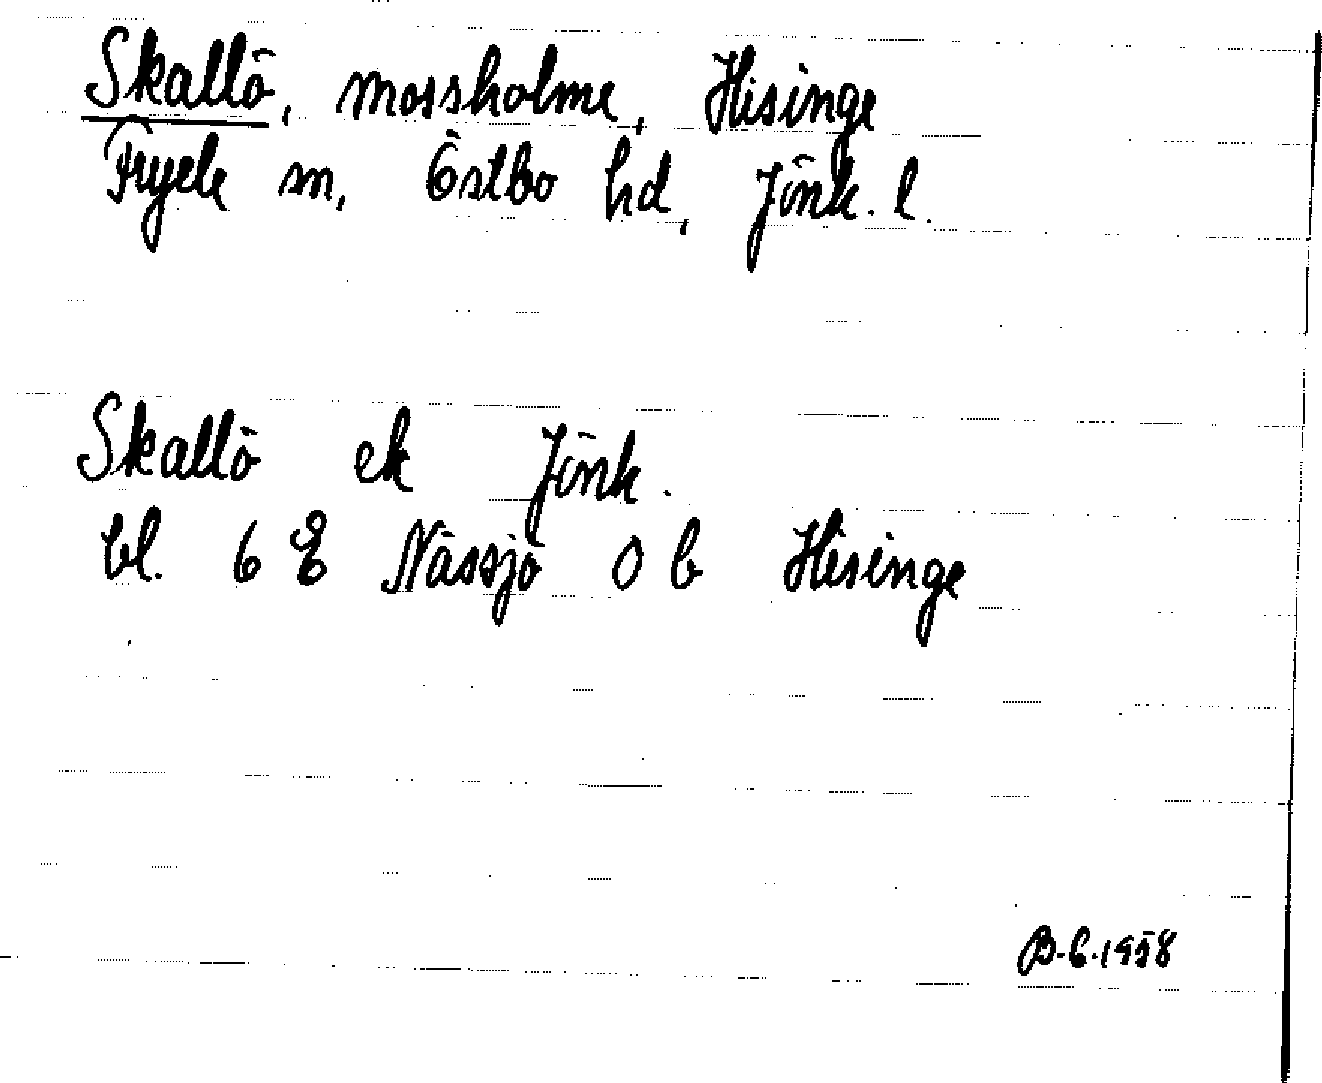 Skallö, mossholme, Hisinge
Fryele sn, Östbo hd, Jönk. l.
Skallö ek Jönk.
bl. 6 E Nässjö 0 b Hisinge
B-6.1958